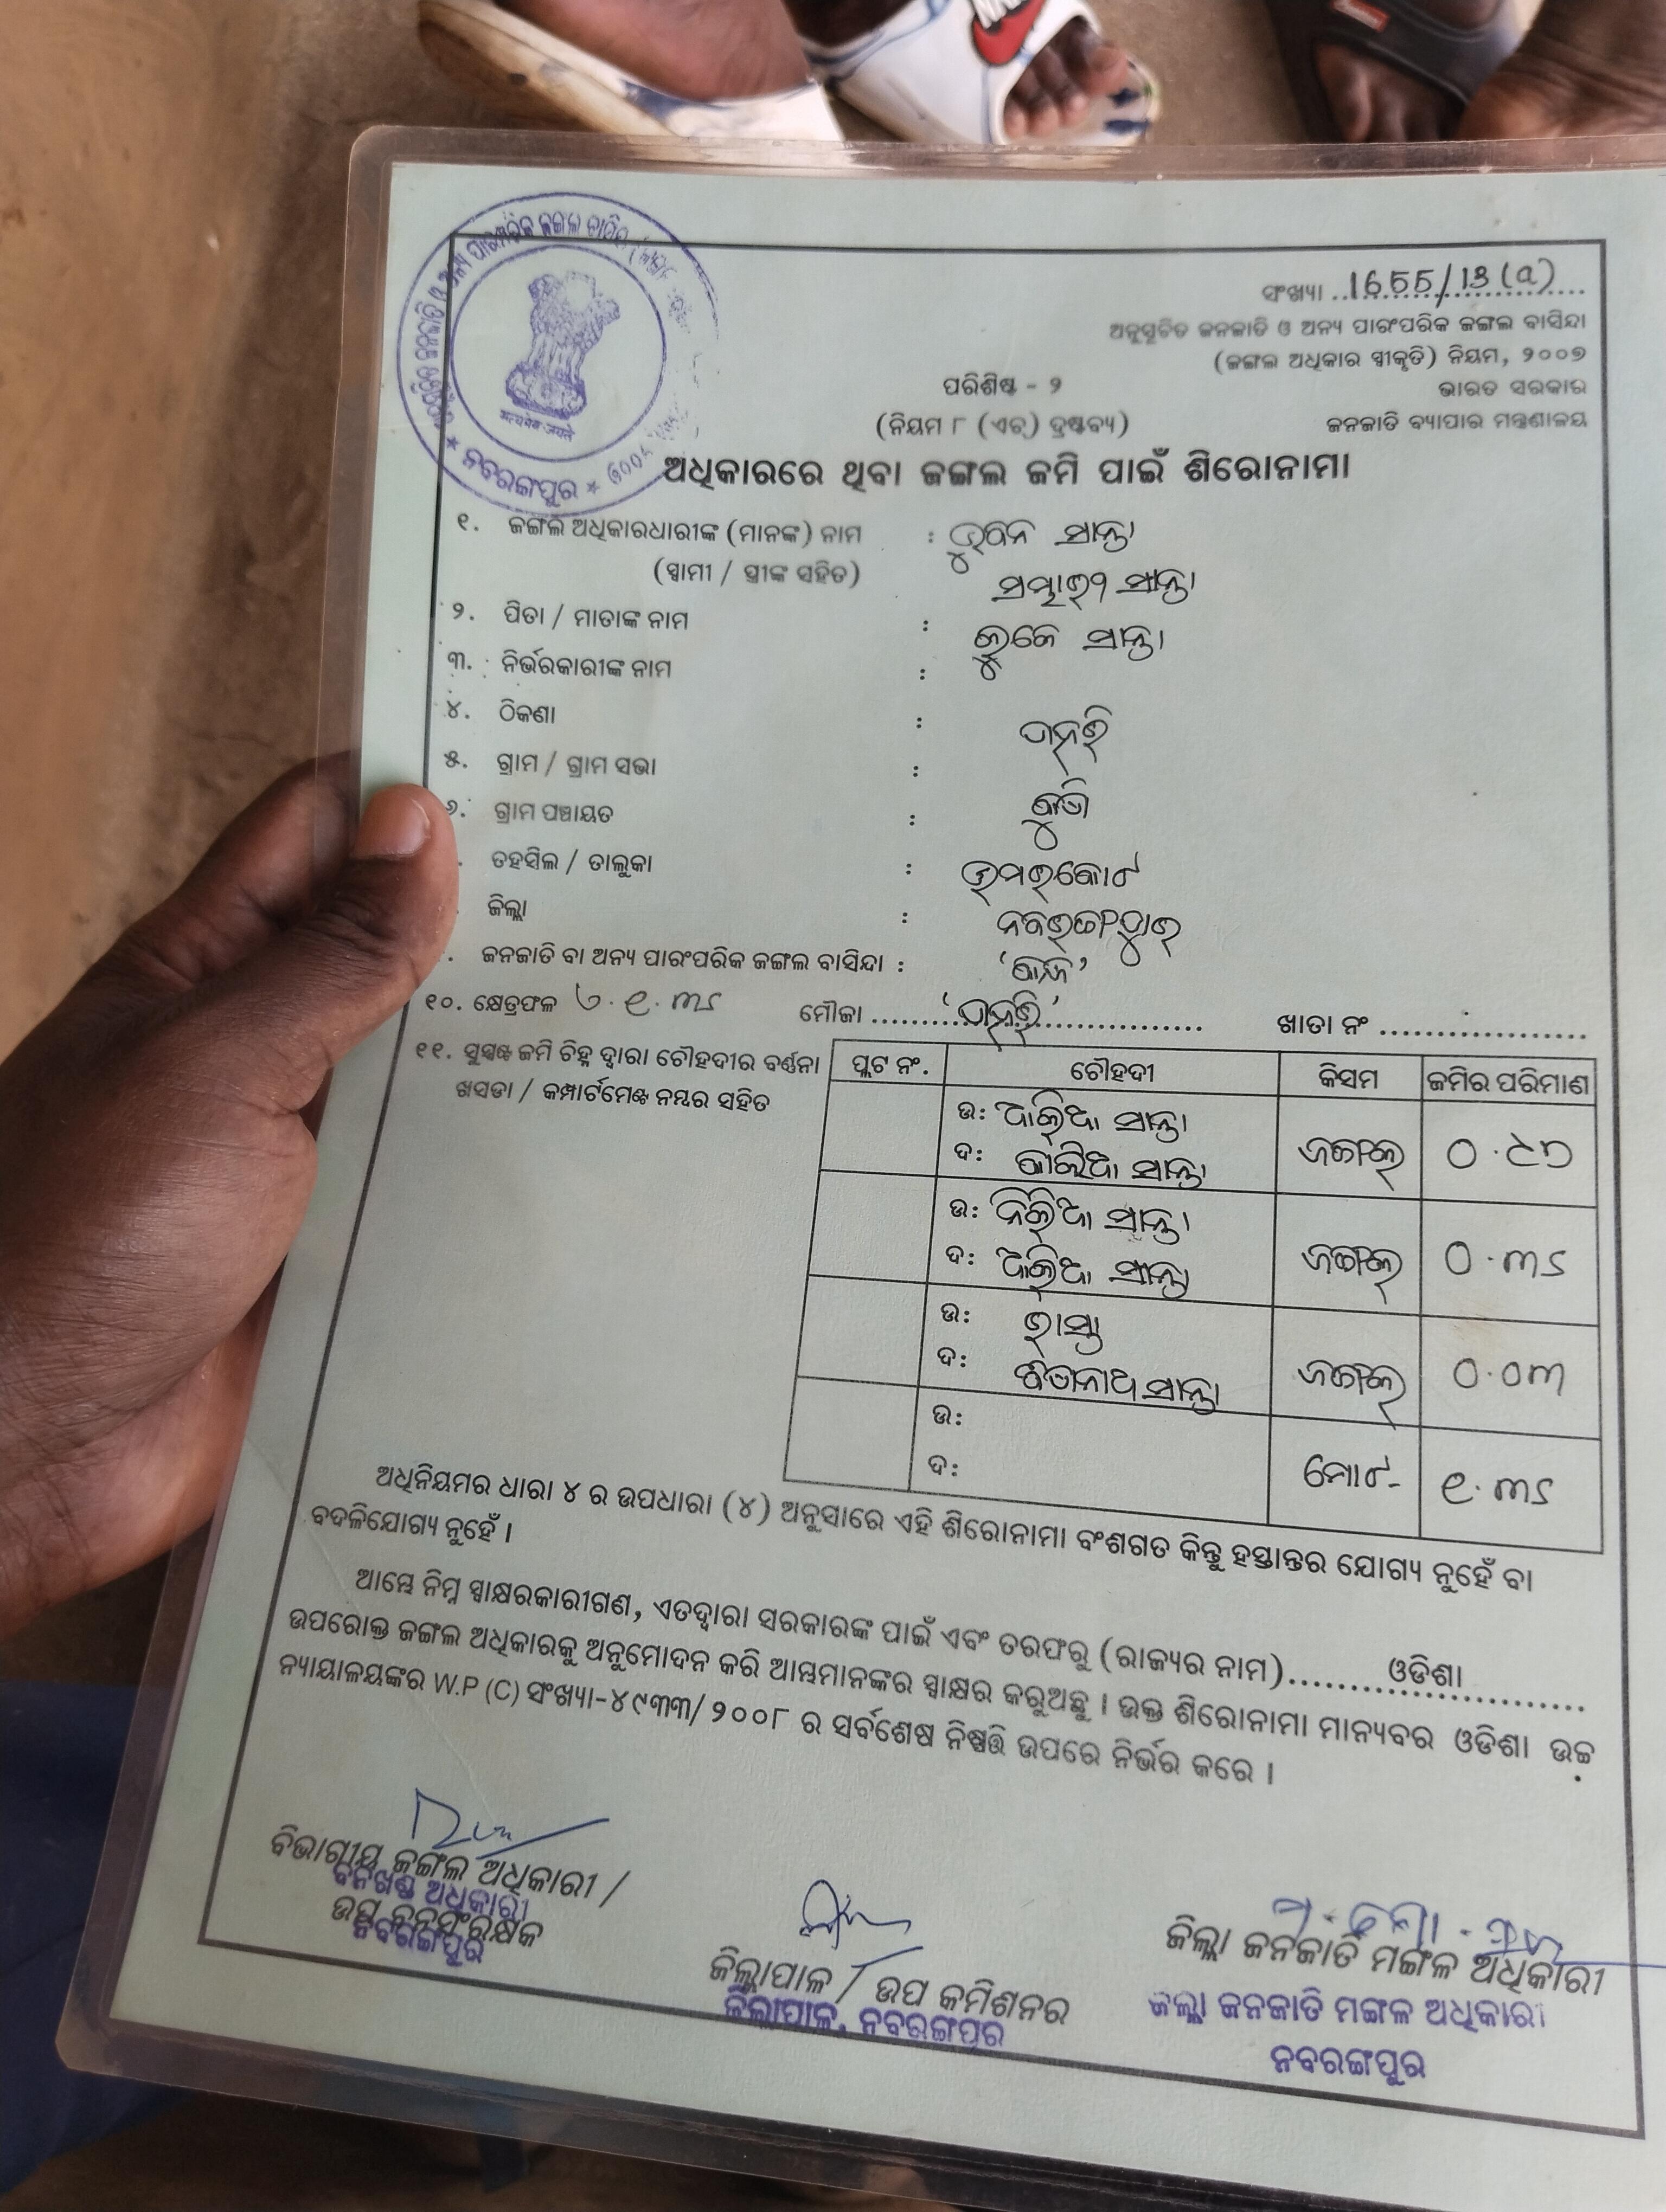 ସଂଖ୍ୟା ..1655/13(a)......
ଅନୁସୂଚିତ ଜନଜାତି ଓ ଅନ୍ୟ ପାରଂପରିକ ଜଙ୍ଗଲ ବାସିନ୍ଦା
(ଜଙ୍ଗଲ ଅଧିକାର ସ୍ୱୀକୃତି) ନିୟମ, ୨୦୦୭
ପରିଶିଷ୍ଟ - ୨
ଭାରତ ସରକାର
(ନିୟମ ୮ (ଏଚ୍) ଦ୍ରଷ୍ଟବ୍ୟ)
ଜନଜାତି ବ୍ୟାପାର ମନ୍ତ୍ରଣାଳୟ
सत्यमेव जयते
ନବରଙ୍ଗପୁର
ଅଧିକାରରେ ଥିବା ଜଙ୍ଗଲ ଜମି ପାଇଁ ଶିରୋନାମା
୧. ଜଙ୍ଗଲ ଅଧିକାରଧାରୀଙ୍କ (ମାନଙ୍କ) ନାମ : ଭୁବନ ସାନ୍ତା
(ସ୍ୱାମୀ / ସ୍ତ୍ରୀଙ୍କ ସହିତ) ସାନ୍ତା
୨. ପିତା / ମାତାଙ୍କ ନାମ : ସାନ୍ତା
୩. ନିର୍ଭରକାରୀଙ୍କ ନାମ :
୪. ଠିକଣା :
୫. ଗ୍ରାମ / ଗ୍ରାମ ସଭା :
୬. ଗ୍ରାମ ପଞ୍ଚାୟତ :
. ତହସିଲ / ତାଲୁକା : ଉମରକୋଟ
. ଜିଲ୍ଲା : ନବରଙ୍ଗପୁର
. ଜନଜାତି ବା ଅନ୍ୟ ପାରଂପରିକ ଜଙ୍ଗଲ ବାସିନ୍ଦା :
୧୦. କ୍ଷେତ୍ରଫଳ ୧.୩୪ ମୌଜା ........ ଖାତା ନଂ ........
୧୧. ସୁସ୍ପଷ୍ଟ ଜମି ଚିହ୍ନ ଦ୍ୱାରା ଚୌହଦୀର ବର୍ଣ୍ଣନା
ଖସଡା / କମ୍ପାର୍ଟମେଣ୍ଟ ନମ୍ବର ସହିତ
ପ୍ଲଟ ନଂ. ଚୌହଦୀ କିସମ ଜମିର ପରିମାଣ
ଉ: ସାନ୍ତା
ଦ: ସାନ୍ତା ଜଙ୍ଗଲ
ଉ: ସାନ୍ତା
ଦ: ସାନ୍ତା ଜଙ୍ଗଲ ୦.୩୪
ଉ: ରାସ୍ତା
ଦ: ସାନ୍ତା ଜଙ୍ଗଲ ୦.୦୩
ଉ:
ଦ: ମୋଟ- ୧.୩୪
ଅଧିନିୟମର ଧାରା ୪ ର ଉପଧାରା (୪) ଅନୁସାରେ ଏହି ଶିରୋନାମା ବଂଶଗତ କିନ୍ତୁ ହସ୍ତାନ୍ତର ଯୋଗ୍ୟ ନୁହେଁ ବା
ବଦଳିଯୋଗ୍ୟ ନୁହେଁ ।
ଆମ୍ଭେ ନିମ୍ନ ସ୍ୱାକ୍ଷରକାରୀଗଣ, ଏତଦ୍ୱାରା ସରକାରଙ୍କ ପାଇଁ ଏବଂ ତରଫରୁ (ରାଜ୍ୟର ନାମ).........ଓଡିଶା........
ଉପରୋକ୍ତ ଜଙ୍ଗଲ ଅଧିକାରକୁ ଅନୁମୋଦନ କରି ଆମ୍ଭମାନଙ୍କର ସ୍ୱାକ୍ଷର କରୁଅଛୁ । ଉକ୍ତ ଶିରୋନାମା ମାନ୍ୟବର ଓଡିଶା ଉଚ୍ଚ
ନ୍ୟାୟାଳୟଙ୍କର W.P (C) ସଂଖ୍ୟା-୪୯୩୩/୨୦୦୮ ର ସର୍ବଶେଷ ନିଷ୍ପତ୍ତି ଉପରେ ନିର୍ଭର କରେ ।
ବିଭାଗୀୟ ଜଙ୍ଗଲ ଅଧିକାରୀ /
ବନଖଣ୍ଡ ଅଧିକାରୀ
ଉପ ବନସଂରକ୍ଷକ
ନବରଙ୍ଗପୁର
ଜିଲ୍ଲାପାଳ / ଉପ କମିଶନର
ଜିଲ୍ଲାପାଳ, ନବରଙ୍ଗପୁର
ଜିଲ୍ଲା ଜନଜାତି ମଙ୍ଗଳ ଅଧିକାରୀ
ଜିଲ୍ଲା ଜନଜାତି ମଙ୍ଗଳ ଅଧିକାରୀ
ନବରଙ୍ଗପୁର